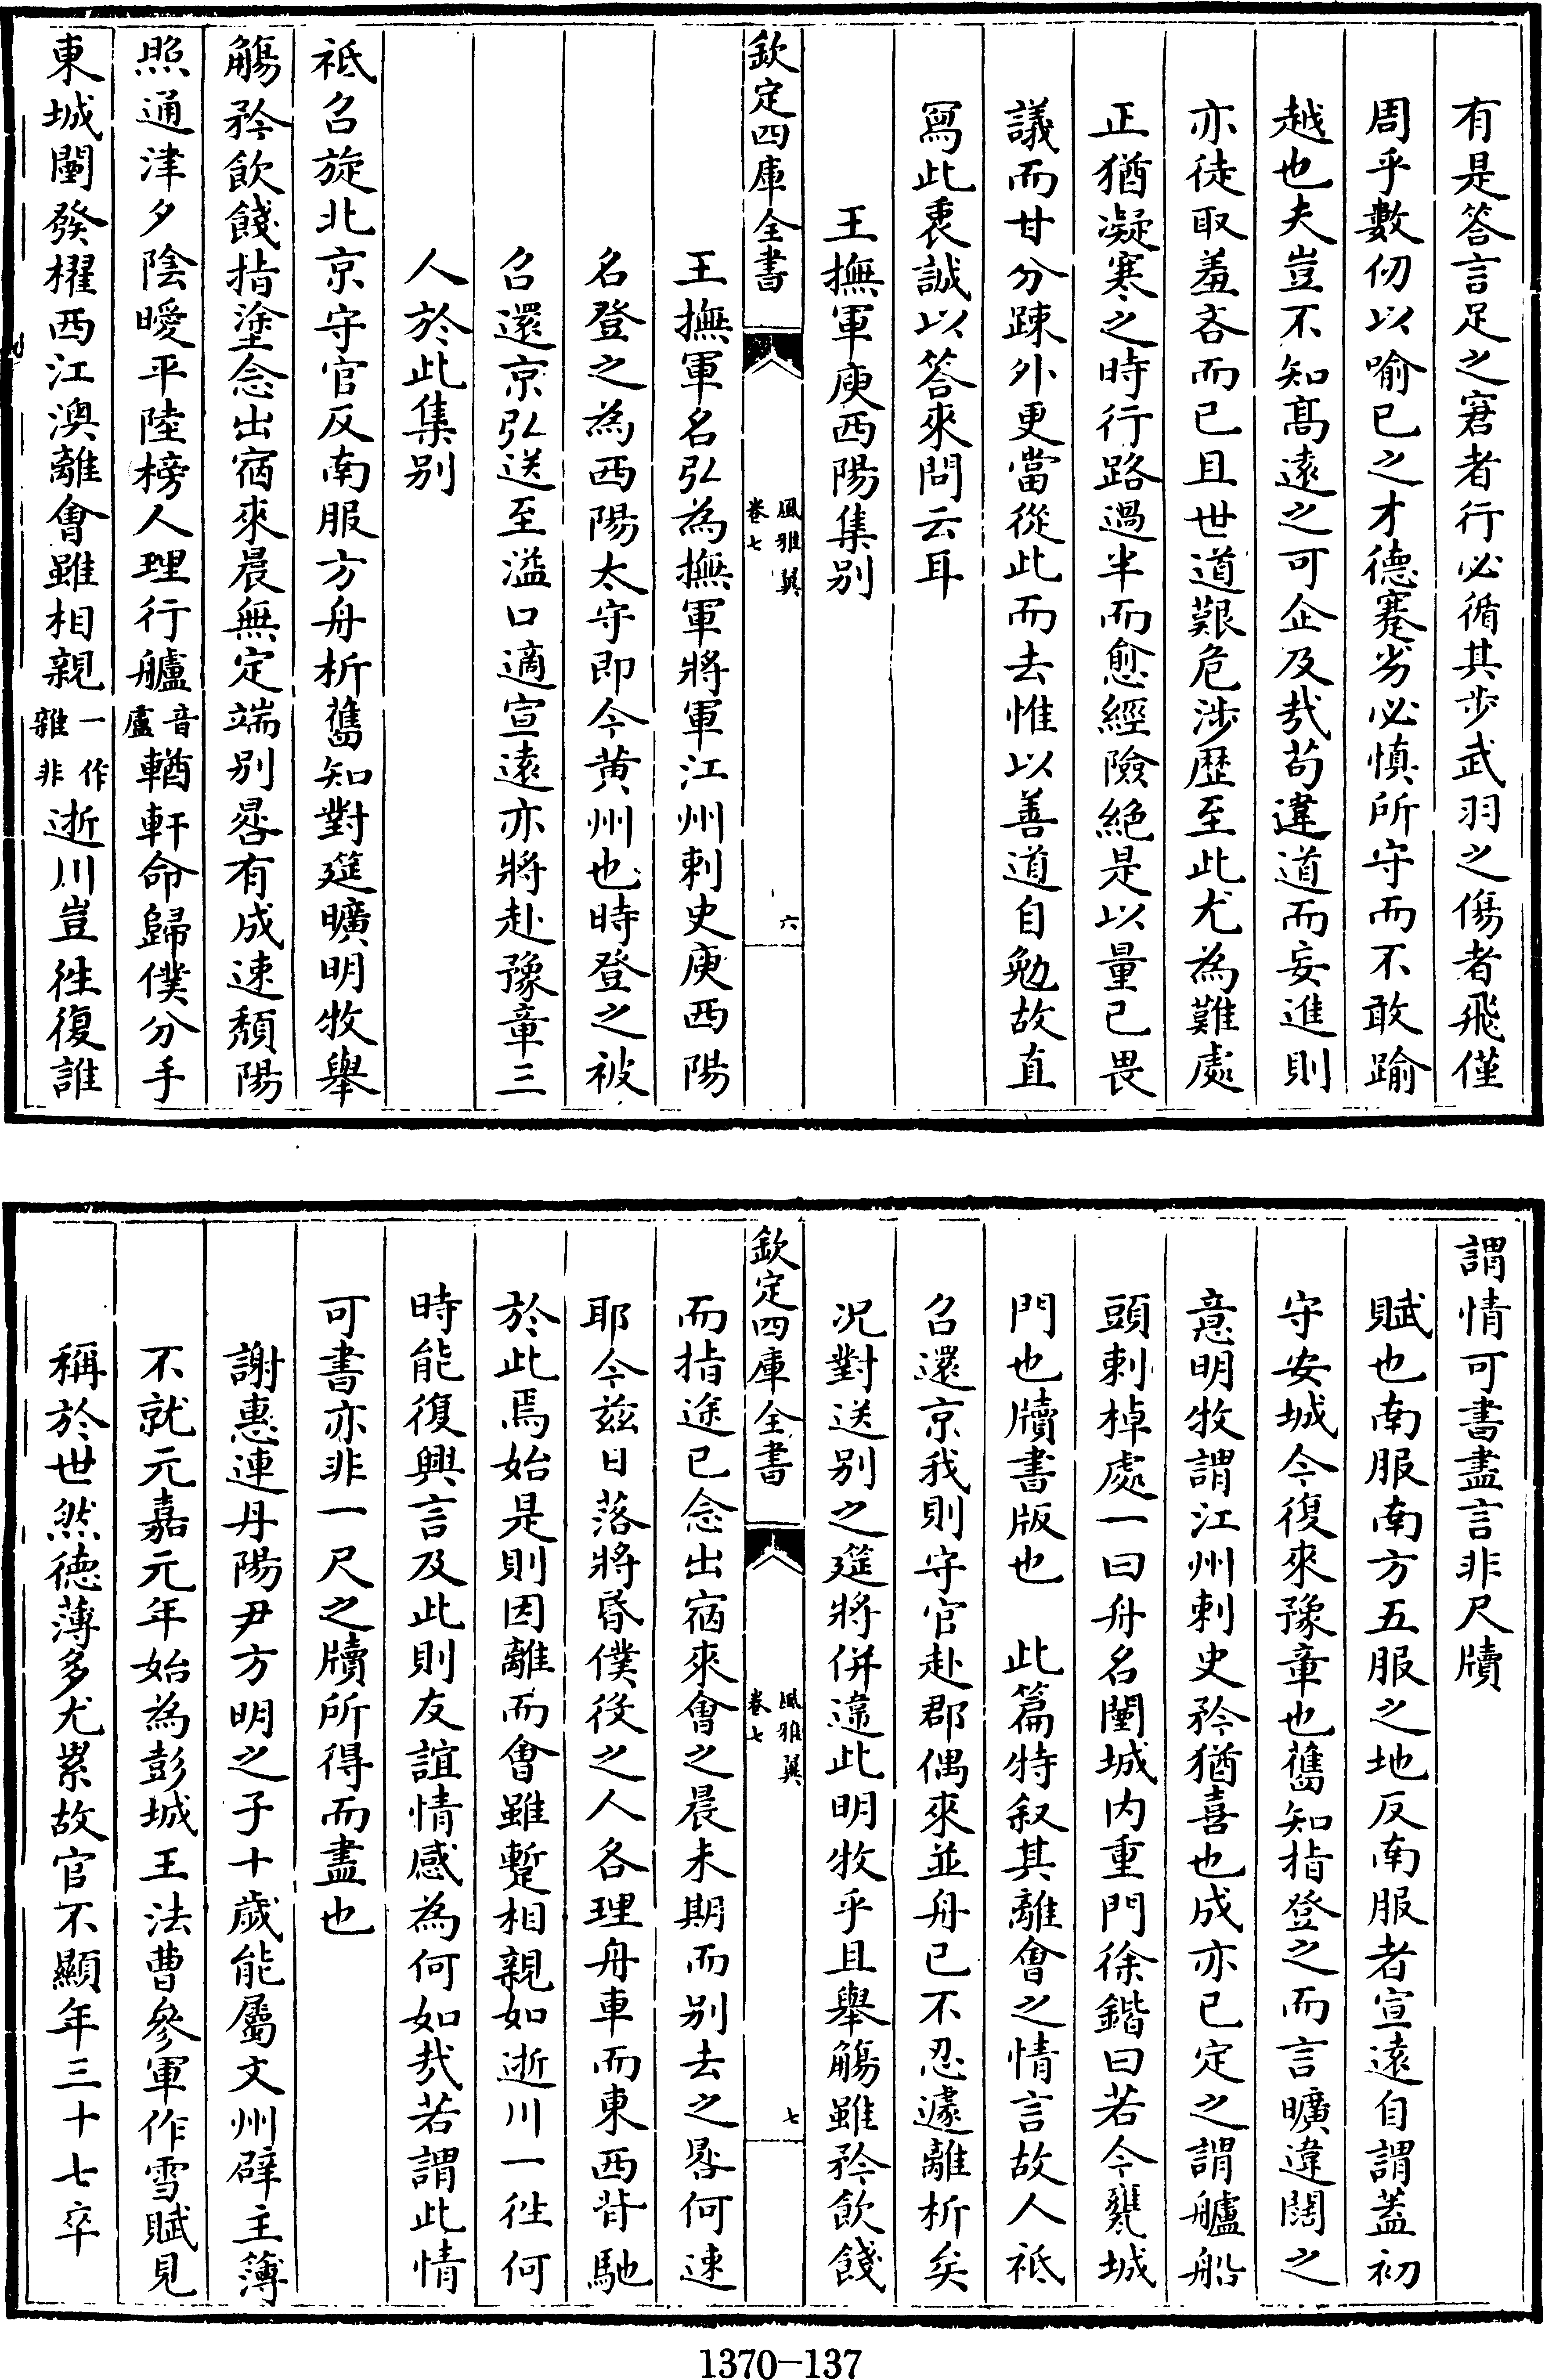 有是答言足之窘者行必循其步武羽之傷者飛僅
周乎數仞以喻已之才德蹇劣必慎所守而不敢踰
越也夫豈不知髙遠之可企及哉苟違道而妄進則
亦徒取羞吝而已且世道艱危涉歴至此尤為難處
正猶凝寒之時行路過半而愈經險絶是以量已畏
議而甘分踈外更當從此而去惟以善道自勉故直
寫此衷誠以答來問云耳
王撫軍庾西陽集别
欽定四庫全書
風雅翼
卷七
六
王撫軍名弘為撫軍將軍江州刺史庾西陽
名登之為西陽太守即今黄州也時登之被
召還京弘送至溢口適宣逺亦將赴豫章三
人於此集别
祗召旋北京守官反南服方舟析舊知對筵曠明牧舉
觴矜飲餞指塗念出宿來晨無定端别晷有成速頹陽
照通津夕陰曖平陸榜人理行艫音盧輶軒命歸僕分手
東城闉發櫂西江澳離會雖相親一作雖非逝川豈徃復誰
謂情可書盡言非尺牘
賦也南服南方五服之地反南服者宣逺自謂蓋初
守安城今復來豫章也舊知指登之而言曠違闊之
意明牧謂江州刺史矜猶喜也成亦已定之謂艫船
頭刺棹處一曰舟名闉城内重門徐鍇曰若今甕城
門也牘書版也 此篇特叙其離會之情言故人祗
召還京我則守官赴郡偶來並舟已不忍遽離析矣
况對送别之筵將併違此明牧乎且舉觴雖矜飲餞
欽定四庫全書
風雅翼
卷七
七
而指途已念出宿來會之晨未期而别去之晷何速
耶今兹日落將昏僕役之人各理舟車而東西背馳
於此焉始是則因離而會雖蹔相親如逝川一徃何
時能復興言及此則友誼情感為何如哉若謂此情
可書亦非一尺之牘所得而盡也
謝惠連丹陽尹方明之子十歲能屬文州辟主簿
不就元嘉元年始為彭城王法曹參軍作雪賦見
稱於世然德薄多尤累故官不顯年三十七卒
1370-137